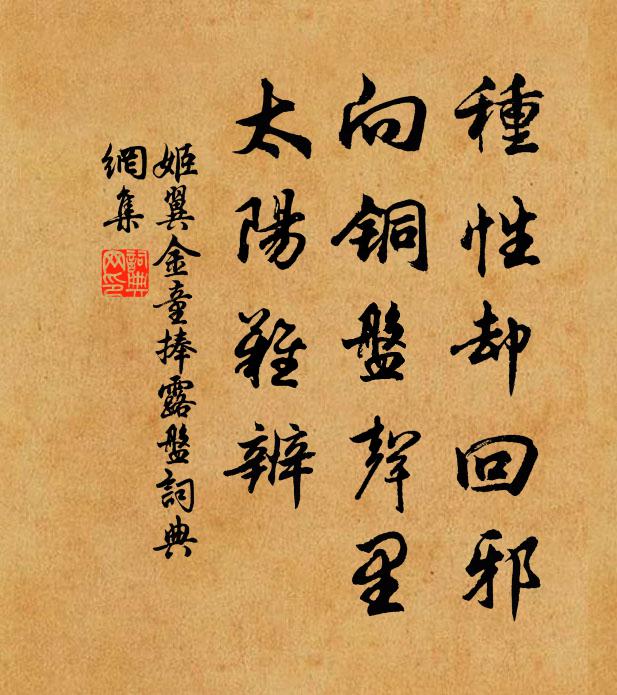 種性却回邪
向铜盤聲里
太陽難辨
姬翼金童捧露盤詞典
網集
詞典网印